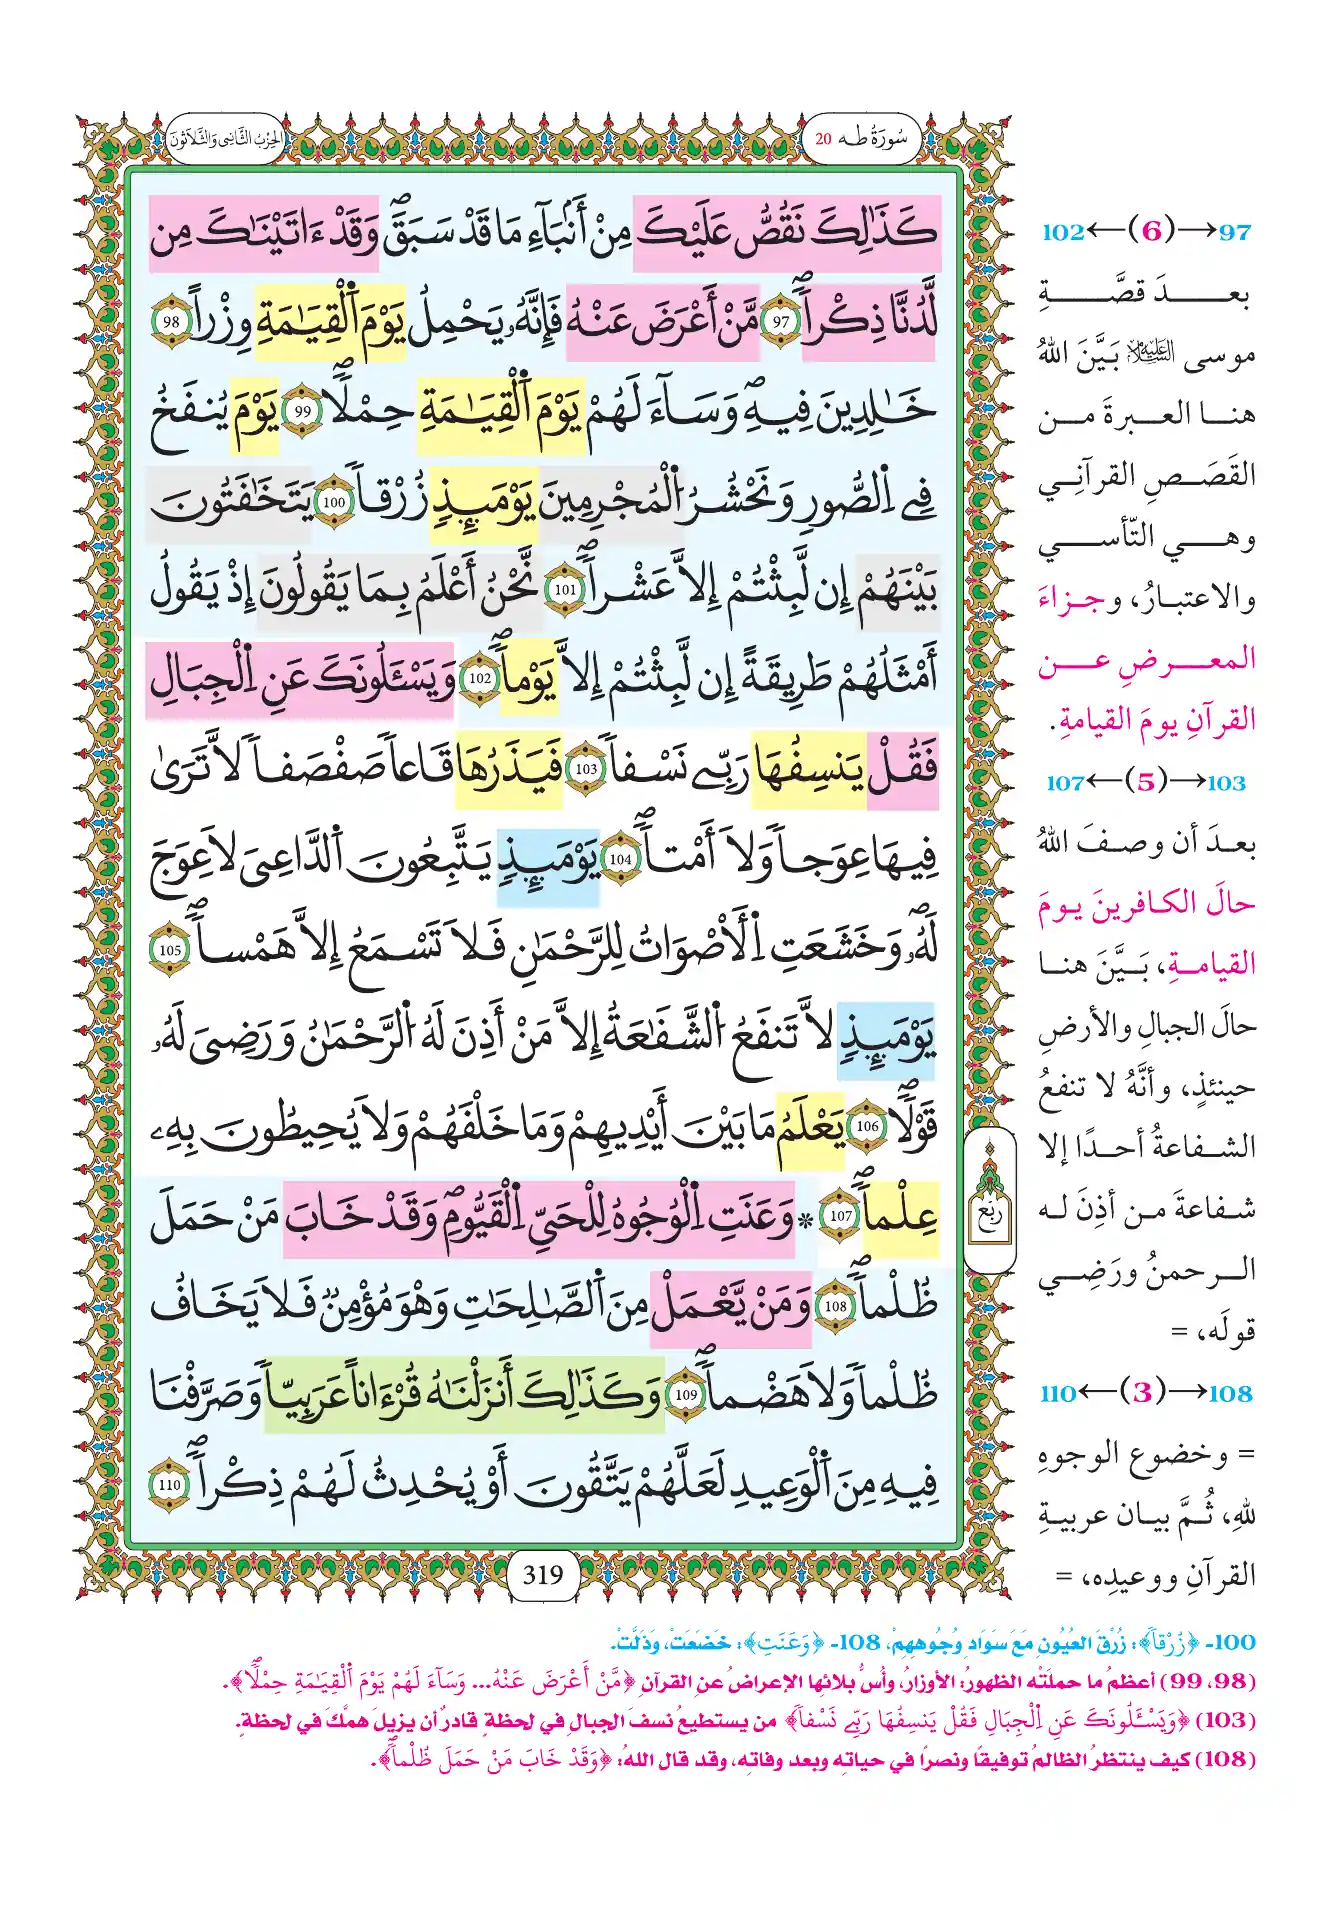 سُورَةُ طه 20
الحِزْبُ الثَّانِي وَالثَّلَاثُونَ
كَذَٰلِكَ نَقُصُّ عَلَيْكَ مِنْ أَنۢبَآءِ مَا قَدْ سَبَقَۖ وَقَدْ ءَاتَيْنَٰكَ مِن
لَّدُنَّا ذِكْراٗۖ 97 مَّنْ أَعْرَضَ عَنْهُ فَإِنَّهُۥ يَحْمِلُ يَوْمَ اَ۬لْقِيَٰمَةِ وِزْراً 98
خَٰلِدِينَ فِيهِۖ وَسَآءَ لَهُمْ يَوْمَ اَ۬لْقِيَٰمَةِ حِمْلاٗۖ 99 يَوْمَ يُنفَخُ
فِے اِ۬لصُّورِ وَنَحْشُرُ اُ۬لْمُجْرِمِينَ يَوْمَئِذٖ زُرْقاٗ 100 يَتَخَٰفَتُونَ
بَيْنَهُمْ إِن لَّبِثْتُمْ إِلاَّ عَشْراٗۖ 101 نَّحْنُ أَعْلَمُ بِمَا يَقُولُونَ إِذْ يَقُولُ
أَمْثَلُهُمْ طَرِيقَةً إِن لَّبِثْتُمْ إِلاَّ يَوْماٗۖ 102 وَيَسْـَٔلُونَكَ عَنِ اِ۬لْجِبَالِ
فَقُلْ يَنسِفُهَا رَبِّے نَسْفاٗ 103 فَيَذَرُهَا قَاعاٗ صَفْصَفاٗ لاَّ تَرَىٰ
فِيهَا عِوَجاٗ وَلَا أَمْتاٗۖ 104 يَوْمَئِذٖ يَتَّبِعُونَ اَ۬لدَّاعِيَ لَا عِوَجَ
لَهُۥۖ وَخَشَعَتِ اِ۬لْأَصْوَاتُ لِلرَّحْمَٰنِ فَلَا تَسْمَعُ إِلاَّ هَمْساٗۖ 105
يَوْمَئِذٖ لاَّ تَنفَعُ اُ۬لشَّفَٰعَةُ إِلاَّ مَنْ أَذِنَ لَهُ اُ۬لرَّحْمَٰنُ وَرَضِيَ لَهُۥ
قَوْلاٗۖ 106 يَعْلَمُ مَا بَيْنَ أَيْدِيهِمْ وَمَا خَلْفَهُمْ وَلَا يُحِيطُونَ بِهِۦ
عِلْماٗۖ 107 * وَعَنَتِ اِ۬لْوُجُوهُ لِلْحَيِّ اِ۬لْقَيُّومِۖ وَقَدْ خَابَ مَنْ حَمَلَ
ظُلْماٗۖ 108 وَمَنْ يَّعْمَلْ مِنَ اَ۬لصَّٰلِحَٰتِ وَهْوَ مُؤْمِنٞ فَلَا يَخَافُ
ظُلْماٗ وَلَا هَضْماٗۖ 109 وَكَذَٰلِكَ أَنزَلْنَٰهُ قُرْءَاناً عَرَبِيّاٗ وَصَرَّفْنَا
فِيهِ مِنَ اَ۬لْوَعِيدِ لَعَلَّهُمْ يَتَّقُونَ أَوْ يُحْدِثُ لَهُمْ ذِكْراٗۖ 110
ربع
319
97→(6)←102
بعدَ قصَّةِ
موسى ﵇ بَيَّنَ اللهُ
هنا العبرةَ من
القَصَصِ القرآنِي
وهي التّأسي
والاعتبارُ، وجزاءَ
المعرضِ عن
القرآنِ يومَ القيامةِ.
103→(5)←107
بعدَ أن وصفَ اللهُ
حالَ الكافرينَ يومَ
القيامةِ، بَيَّنَ هنا
حالَ الجبالِ والأرضِ
حينئذٍ، وأنَّهُ لا تنفعُ
الشفاعةُ أحدًا إلا
شفاعةَ من أذِنَ له
الرحمنُ ورَضِي
قولَه، =
108→(3)←110
= وخضوع الوجوهِ
للهِ، ثُمَّ بيان عربيةِ
القرآنِ ووعيدِه، =
100- ﴿زُرْقاٗ﴾: زُرْقَ العُيُونِ مَعَ سَوَادِ وُجُوهِهِمْ، 108- ﴿وَعَنَتِ﴾: خَضَعَتْ، وَذَلَّتْ.
(98، 99) أعظمُ ما حملَتْه الظهورُ: الأوزارُ، وأُسُّ بلائها الإعراضُ عنِ القرآنِ ﴿مَّنْ أَعْرَضَ عَنْهُ... وَسَآءَ لَهُمْ يَوْمَ اَ۬لْقِيَٰمَةِ حِمْلاٗۖ﴾.
(103) ﴿وَيَسْـَٔلُونَكَ عَنِ اِ۬لْجِبَالِ فَقُلْ يَنسِفُهَا رَبِّے نَسْفاٗ﴾ من يستطيعُ نسفَ الجبالِ في لحظةٍ قادرٌ أن يزيلَ همَّكَ في لحظةٍ.
(108) كيف ينتظرُ الظالمُ توفيقًا ونصرًا في حياتِه وبعد وفاتِه، وقد قال اللهُ: ﴿وَقَدْ خَابَ مَنْ حَمَلَ ظُلْماٗۖ﴾.